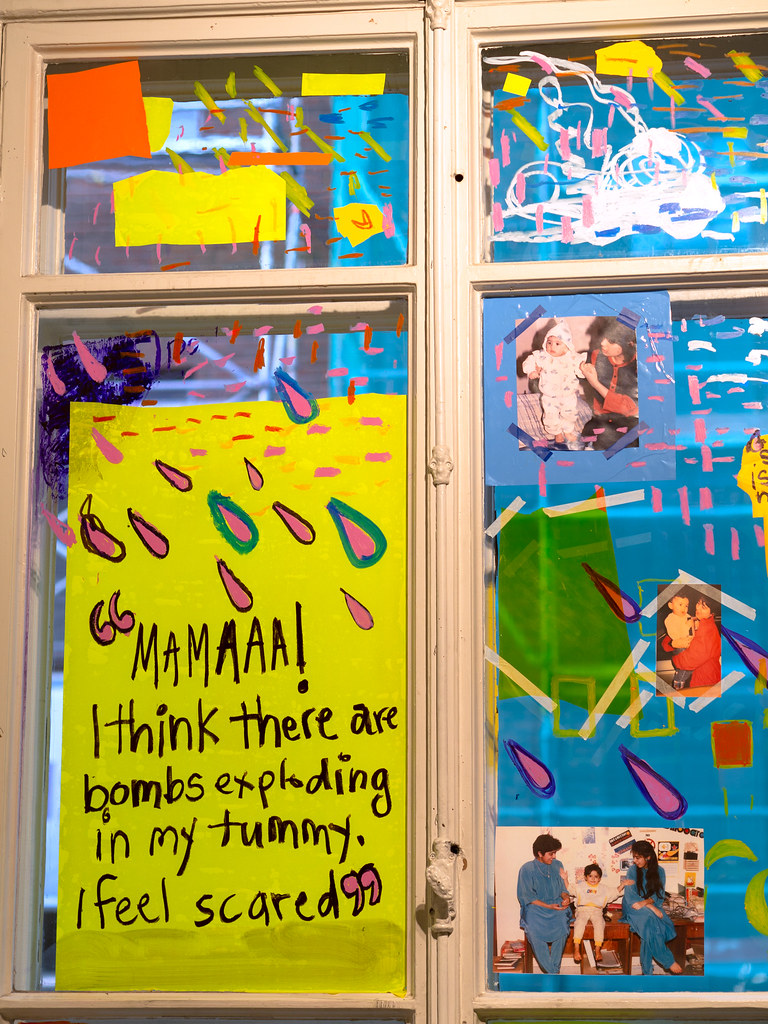 “MAMAAA!
I think there are
bombs exploding
in my tummy.
I feel scared”